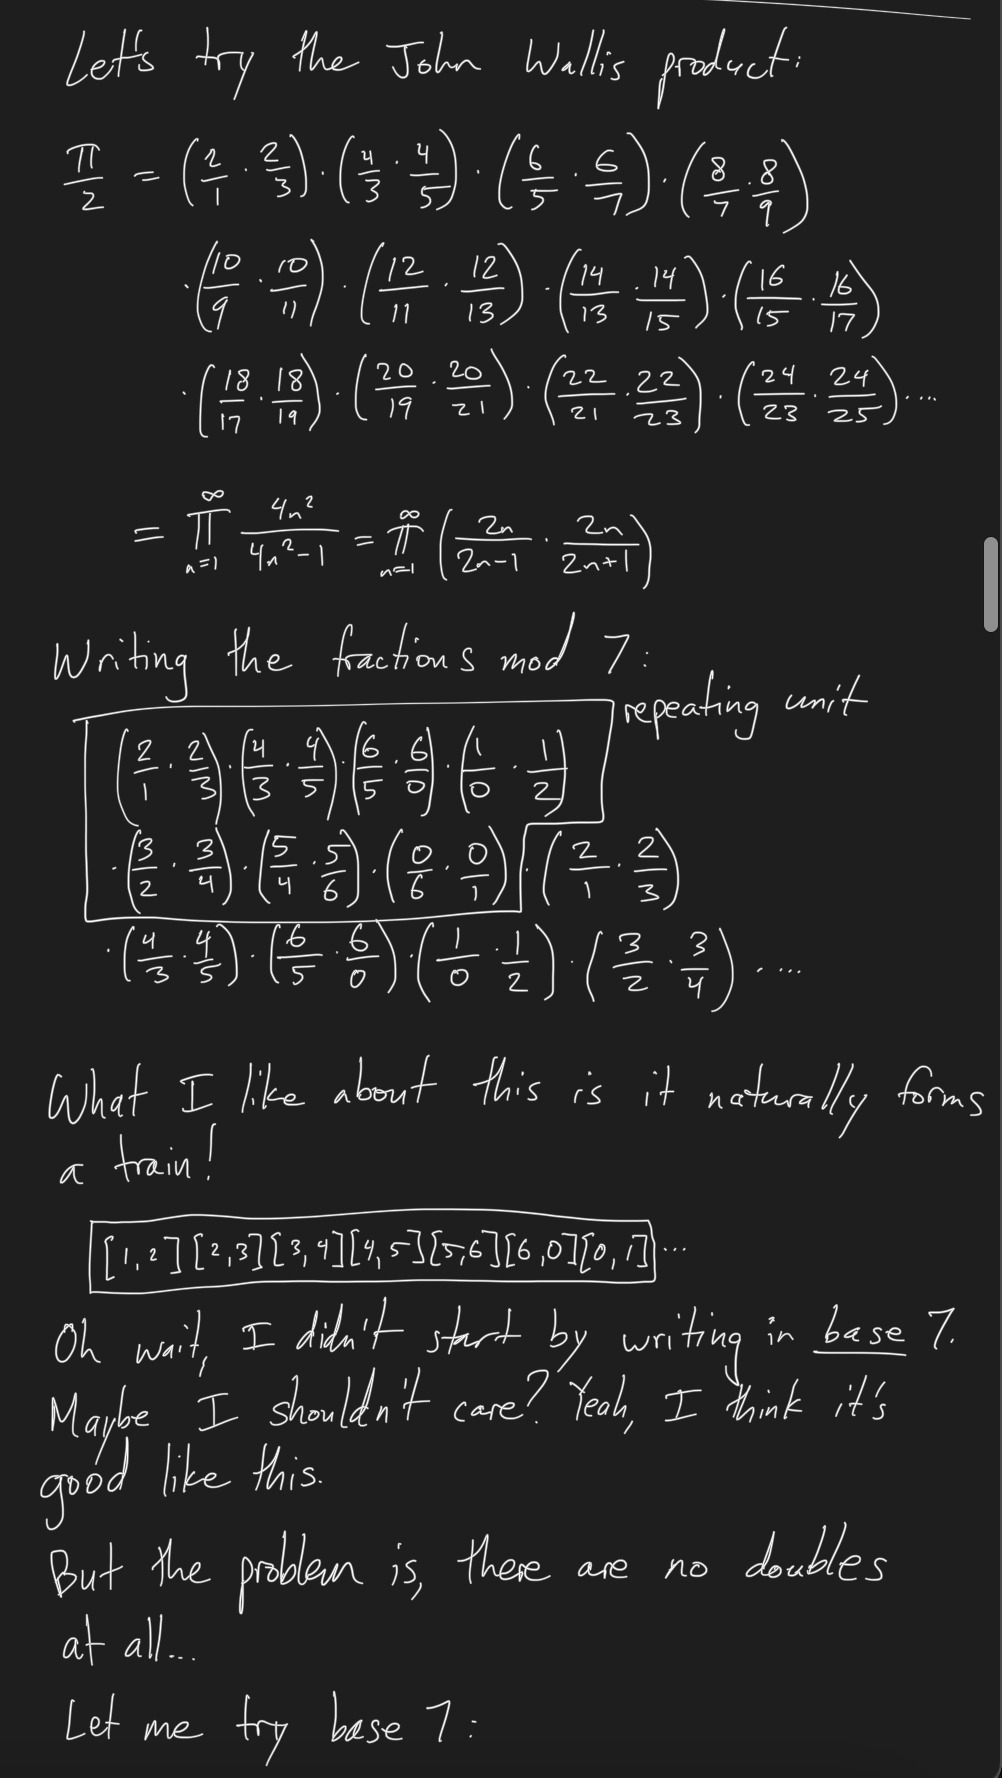 Let's try the John Wallis product:
π/2 = (2/1 · 2/3) · (4/3 · 4/5) · (6/5 · 6/7) · (8/7 · 8/9)
· (10/9 · 10/11) · (12/11 · 12/13) · (14/13 · 14/15) · (16/15 · 16/17)
· (18/17 · 18/19) · (20/19 · 20/21) · (22/21 · 22/23) · (24/23 · 24/25) ....
= ∏_{n=1}^{∞} 4n²/(4n²-1) = ∏_{n=1}^{∞} (2n/(2n-1) · 2n/(2n+1))
Writing the fractions mod 7:
repeating unit
(2/1 · 2/3) · (4/3 · 4/5) · (6/5 · 6/0) · (1/0 · 1/2)
· (3/2 · 3/4) · (5/4 · 5/6) · (0/6 · 0/1) · (2/1 · 2/3)
· (4/3 · 4/5) · (6/5 · 6/0) · (1/0 · 1/2) · (3/2 · 3/4) · ....
What I like about this is it naturally forms
a train!
[1,2][2,3][3,4][4,5][5,6][6,0][0,1] ...
Oh wait, I didn't start by writing in base 7.
Maybe I shouldn't care? Yeah, I think it's
good like this.
But the problem is, there are no doubles
at all...
Let me try base 7: